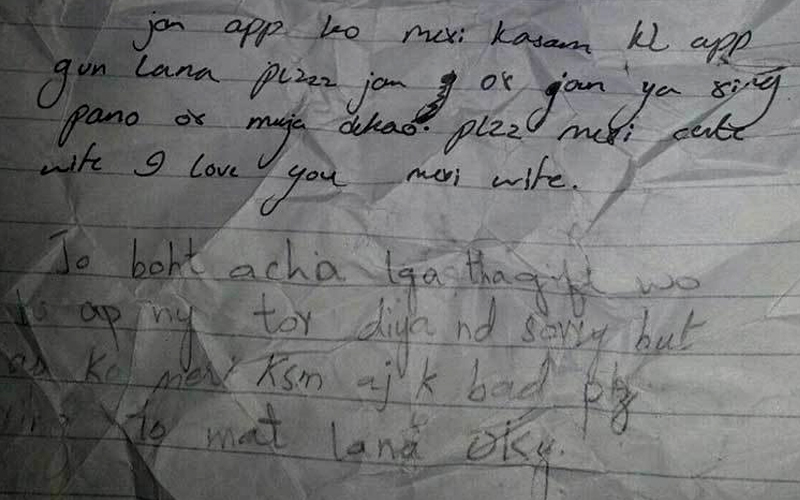 jan app ko meri kasam kl app
gun lana plzzz jan or jan ya ring
pano or muja dekao. plzz meri cute
wife I love you meri wife.
Jo boht acha lga tha gift wo
to ap ny tor diya nd sorry but
ap ko meri Ksm aj k bad plz
to mat lana oky.